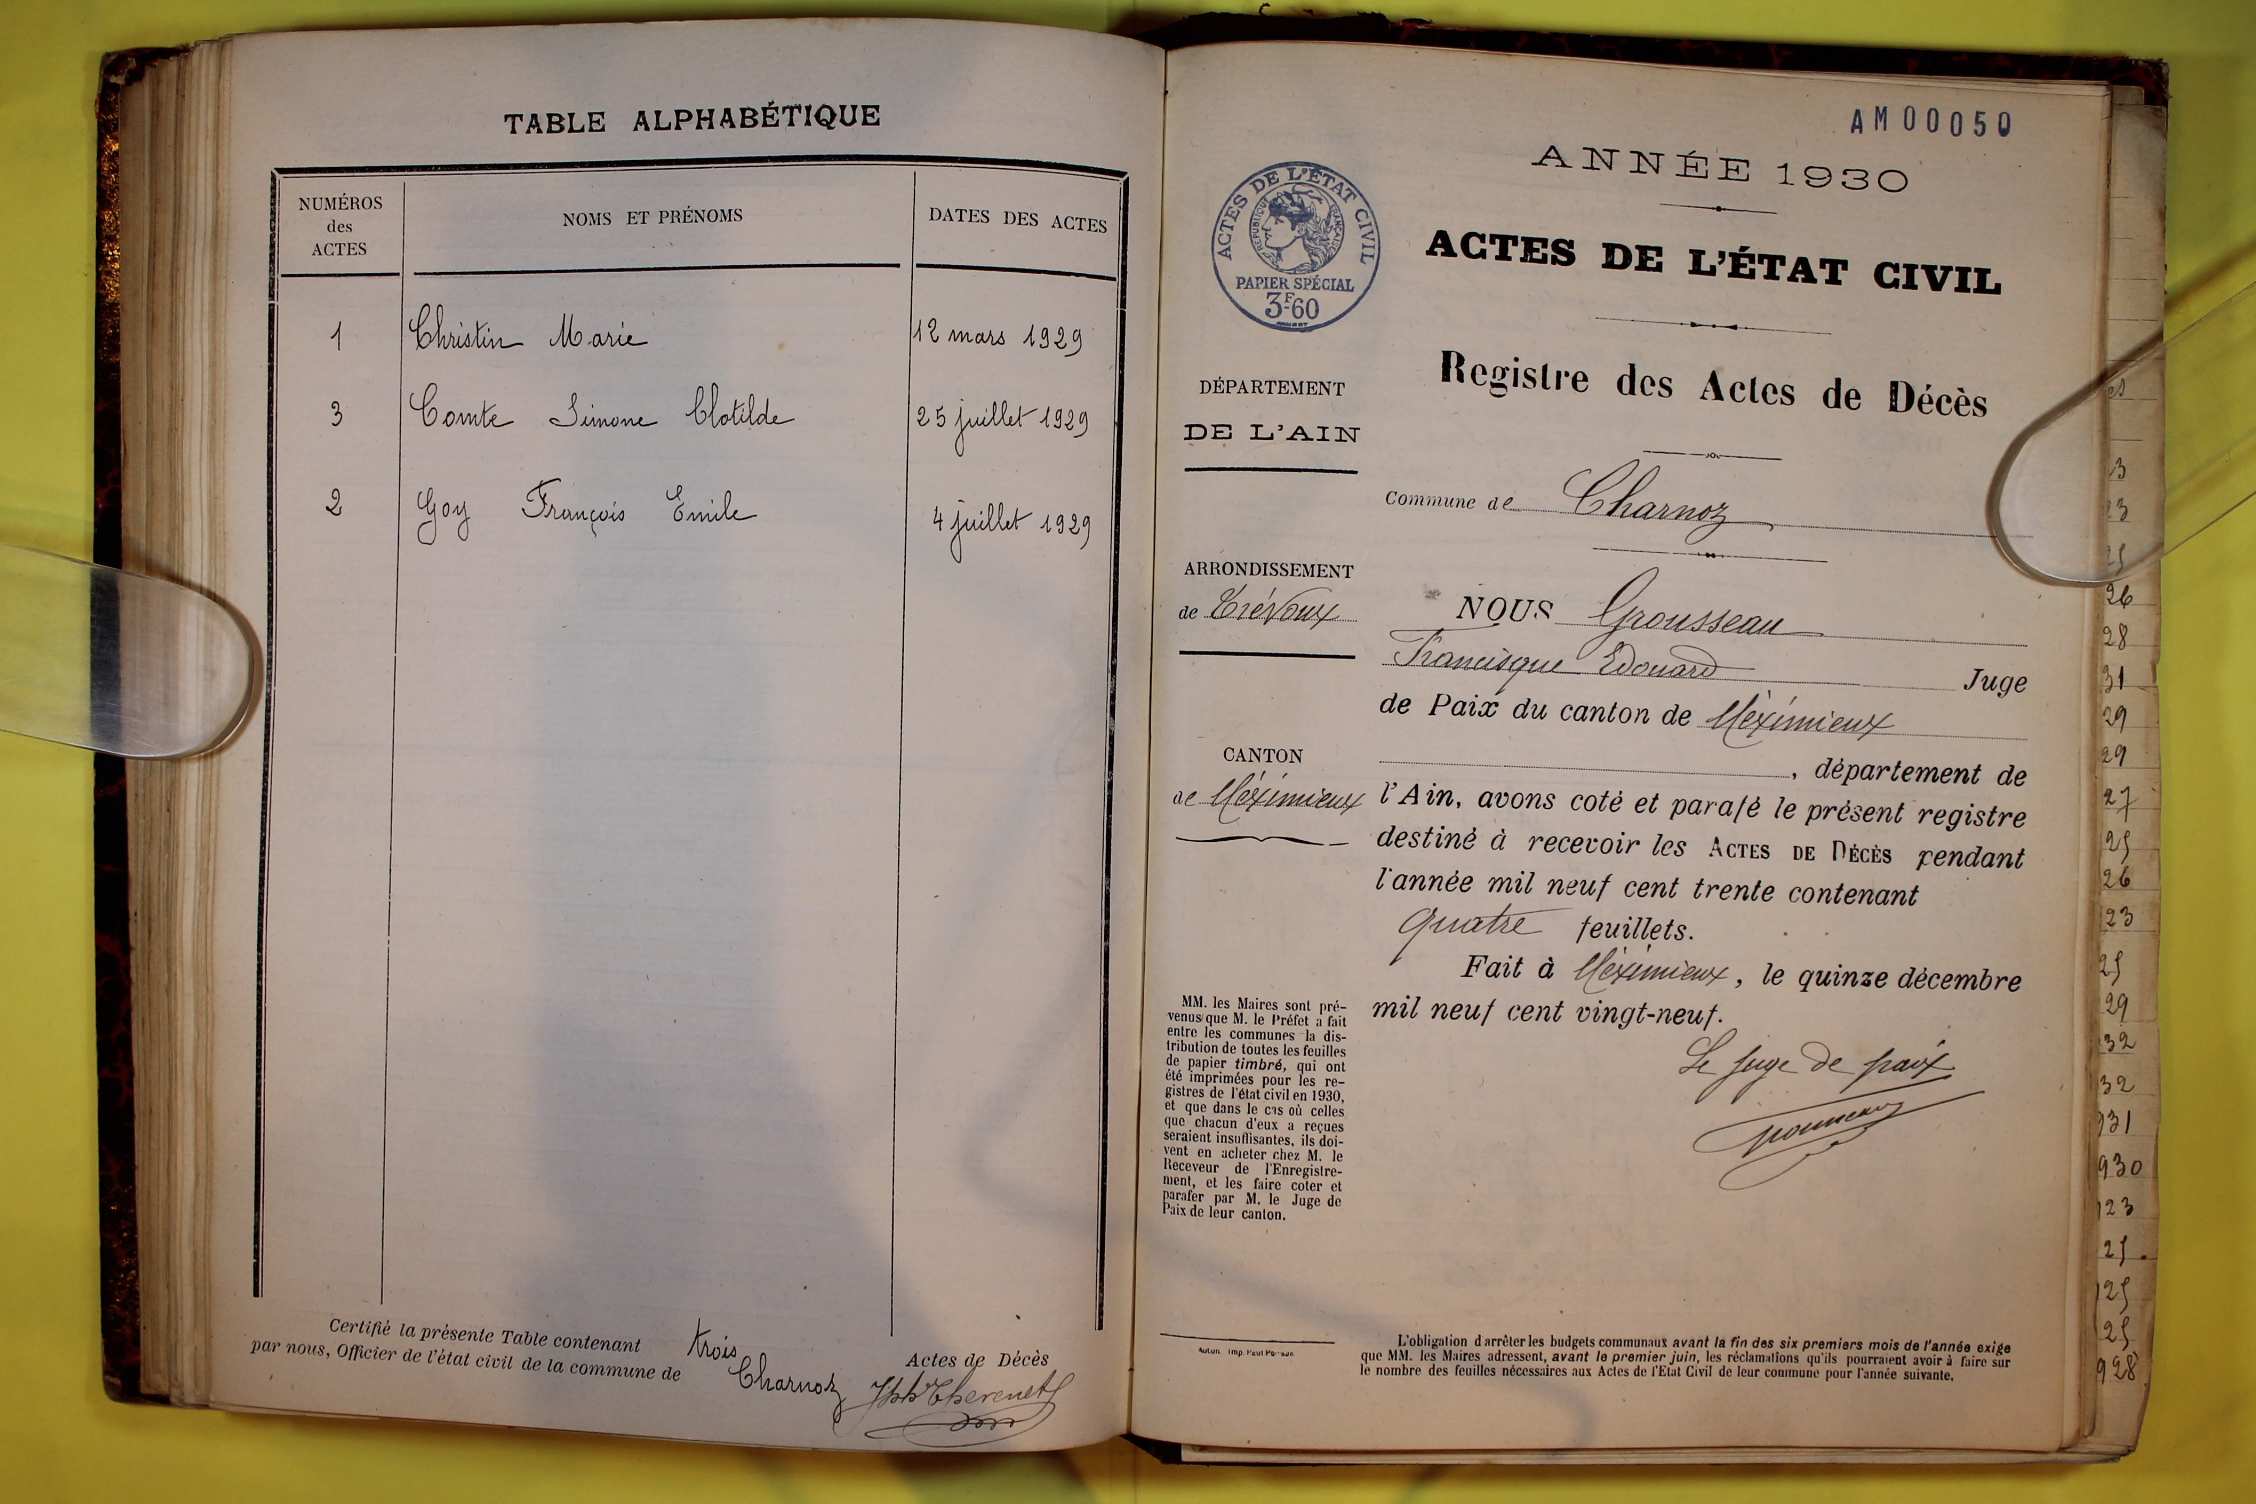 TABLE ALPHABÉTIQUE
NUMÉROS
des
ACTES
NOMS ET PRÉNOMS
DATES DES ACTES
1 Christin Marie 12 mars 1929
3 Comte Simone Clotilde 25 juillet 1929
2 Goy François Emile 4 juillet 1929
Certifié la présente Table contenant trois Actes de Décès
par nous, Officier de l'état civil de la commune de Charnoz
AM00050
ANNÉE 1930
ACTES DE L'ÉTAT CIVIL
RÉPUBLIQUE FRANÇAISE
PAPIER SPÉCIAL
3F60
ACTES DE L'ÉTAT CIVIL
Registre des Actes de Décès
DÉPARTEMENT
DE L'AIN
Commune de Charnoz
ARRONDISSEMENT
de Trévoux
CANTON
de Méximieux
NOUS Grousseau
Francisque Edouard Juge
de Paix du canton de Méximieux
, département de
l'Ain, avons coté et parafé le présent registre
destiné à recevoir les ACTES DE DÉCÈS pendant
l'année mil neuf cent trente contenant
quatre feuillets.
Fait à Méximieux, le quinze décembre
mil neuf cent vingt-neuf.
Le juge de paix
MM. les Maires sont pré-
venus que M. le Préfet a fait
entre les communes la dis-
tribution de toutes les feuilles
de papier timbré, qui ont
été imprimées pour les re-
gistres de l'état civil en 1930,
et que dans le cas où celles
que chacun d'eux a reçues
seraient insuffisantes, ils doi-
vent en acheter chez M. le
Receveur de l'Enregistre-
ment, et les faire coter et
parafer par M. le Juge de
Paix de leur canton.
L'obligation d'arrêter les budgets communaux avant la fin des six premiers mois de l'année exige
que MM. les Maires adressent, avant le premier juin, les réclamations qu'ils pourraient avoir à faire sur
le nombre des feuilles nécessaires aux Actes de l'Etat Civil de leur commune pour l'année suivante.
26
28
31
29
29
27
25
26
23
25
29
32
32
931
930
23
25
25
25
928